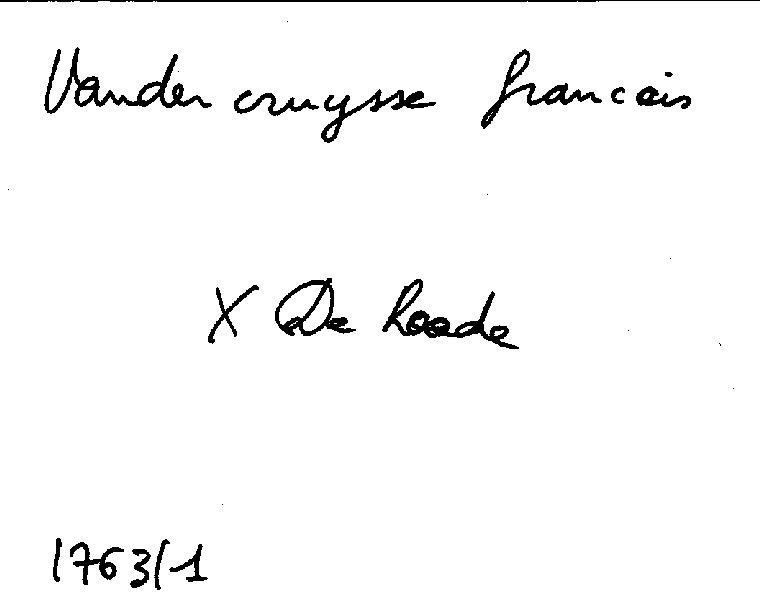 Vander cruysse francois
X De Roode
1763/1